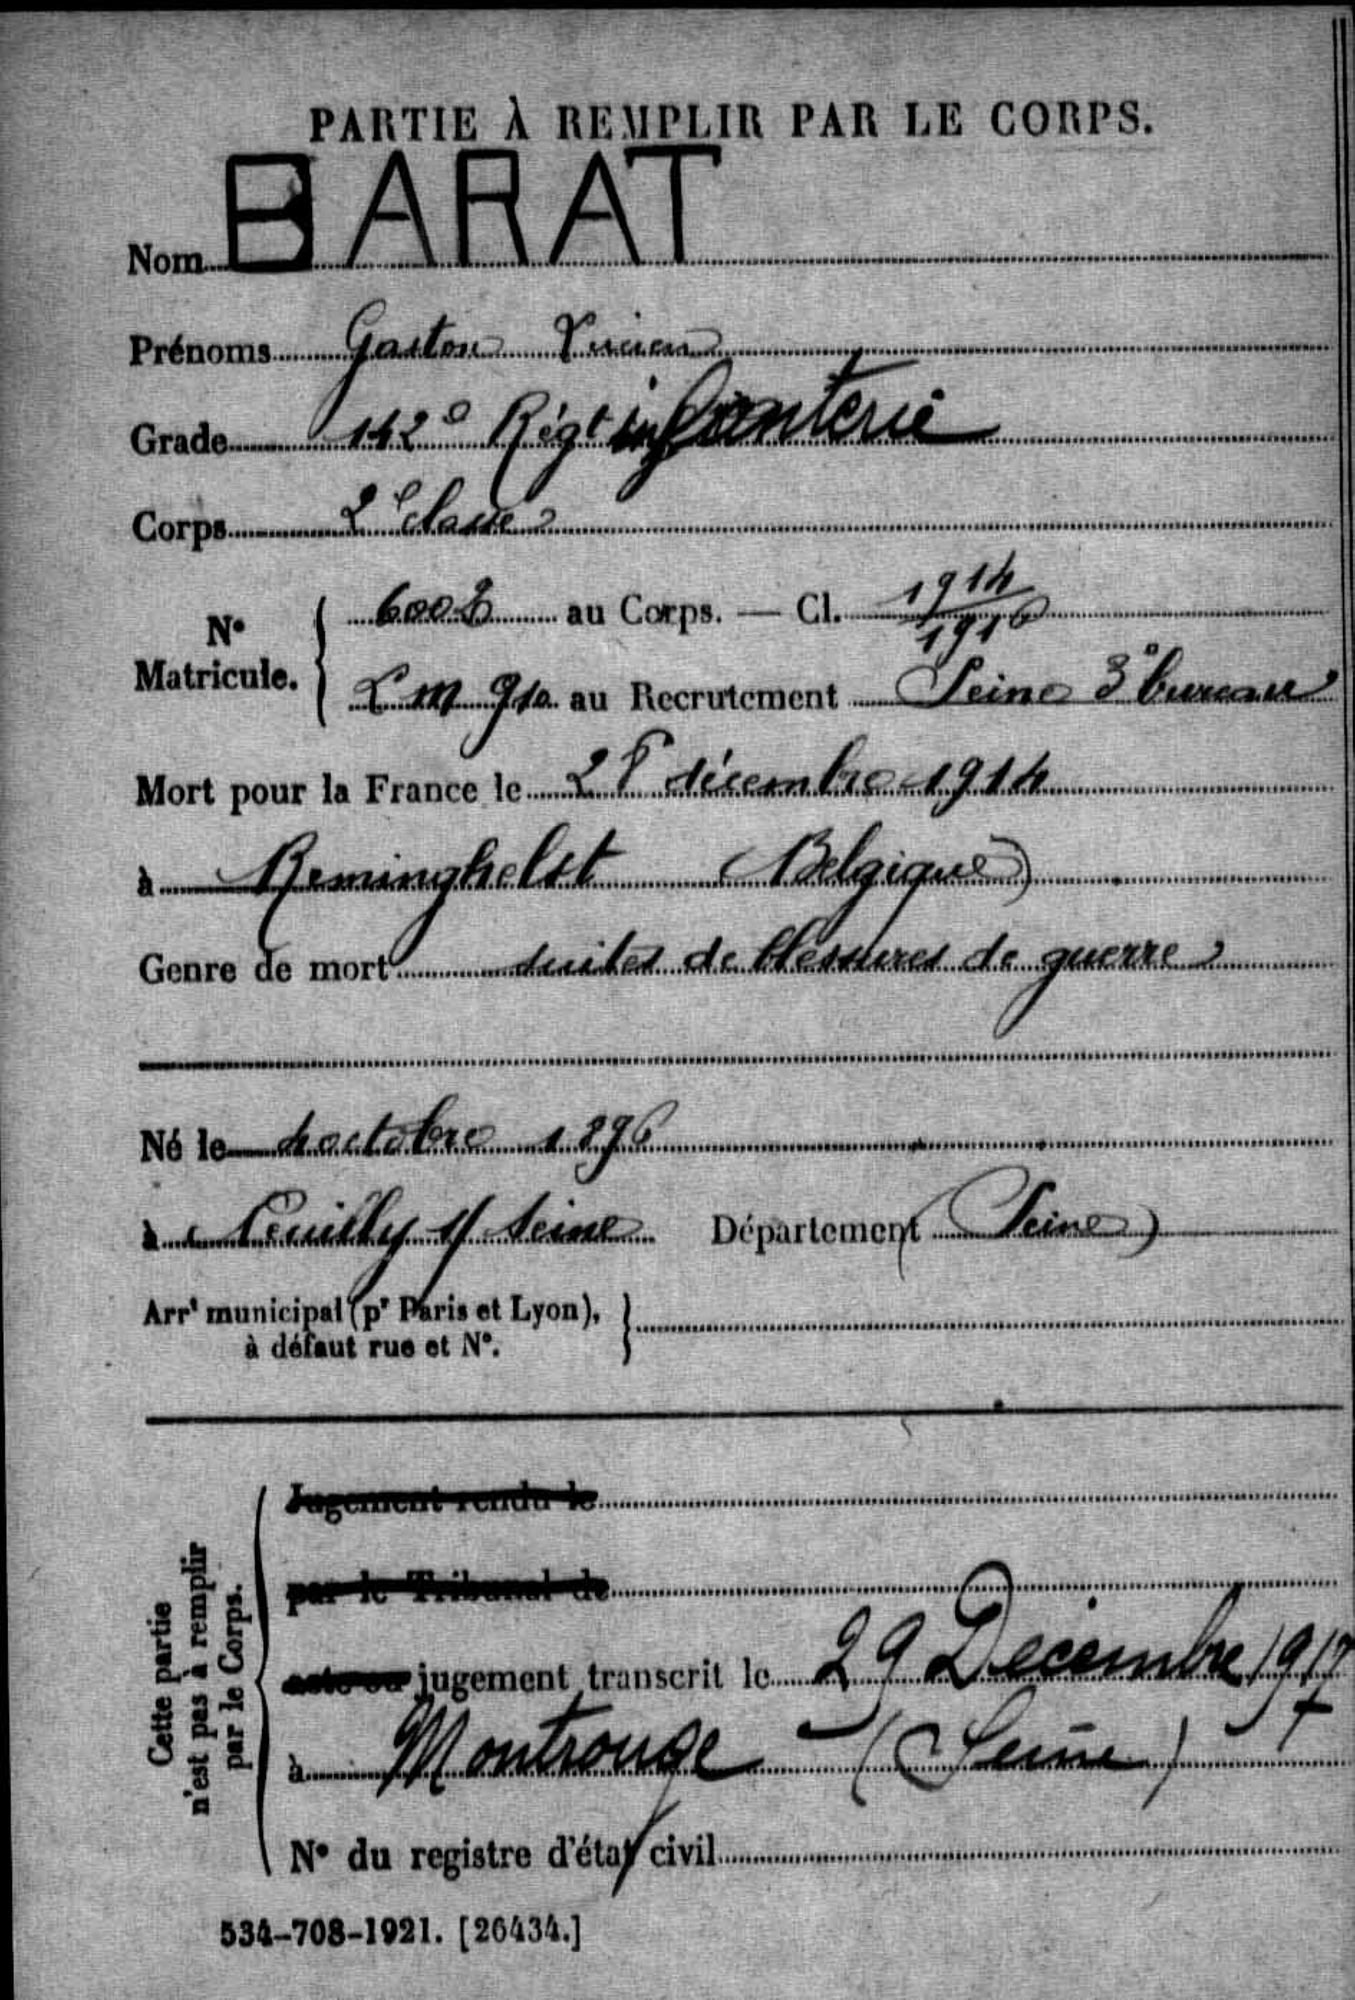 PARTIE À REMPLIR PAR LE CORPS.
Nom BARAT
Prénoms Gaston Lucien
Grade 142e Régt infanterie
Corps 2e classe
No Matricule. 6002 au Corps. — Cl. 1914/1916
L M 910 au Recrutement Seine 3e bureau
Mort pour la France le 28 décembre 1914
à Reminghelst (Belgique)
Genre de mort suites de blessures de guerre
Né le 4 octobre 1896
à Neuilly s/ Seine Département (Seine)
Arrt municipal (pr Paris et Lyon),
à défaut rue et No.
Cette partie
n'est pas à remplir
par le Corps.
Jugement rendu le
par le Tribunal de
acte ou jugement transcrit le 29 Decembre 1917
à Montrouge - (Seine)
No du registre d'état civil
534-708-1921. [26434.]